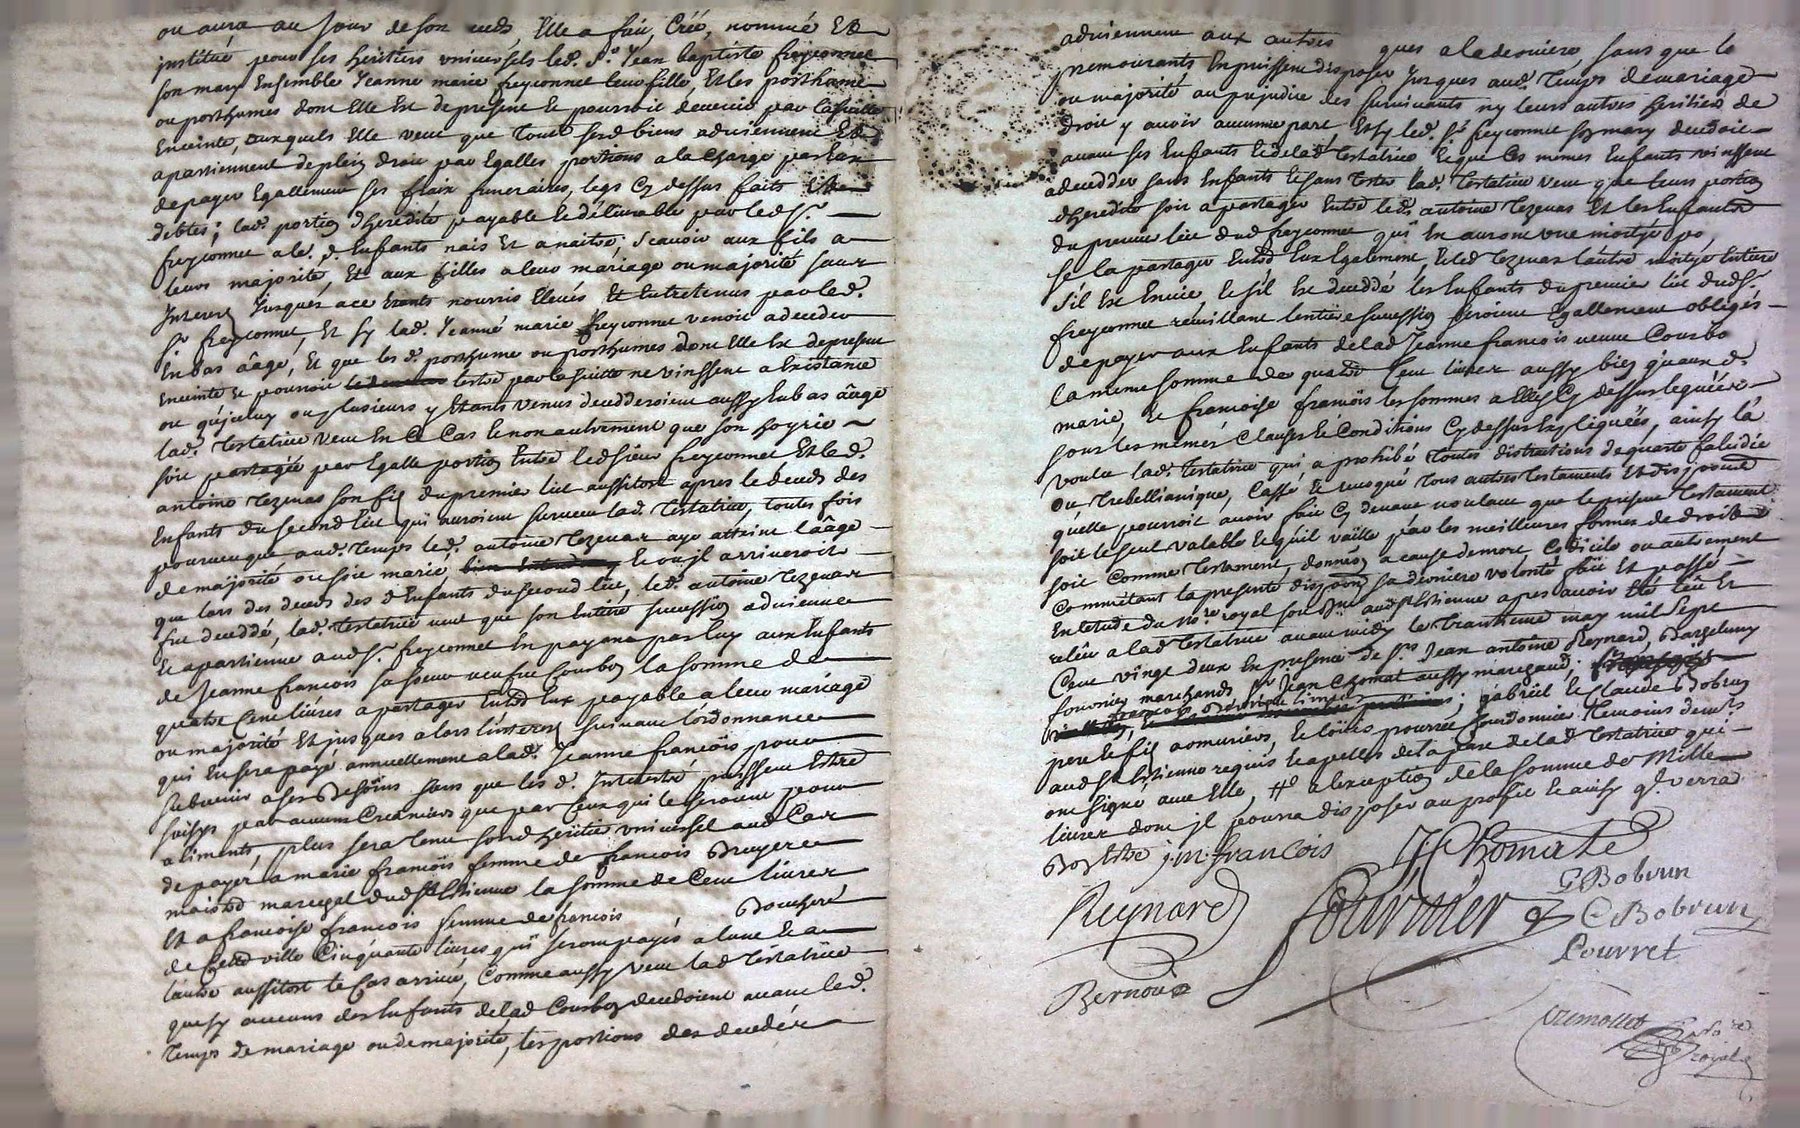 ou aura au jour de son deds, Elle a fait, Créé, nommé Et
institué pour ses heritiers universels led. Sr. Jean baptiste freyconnet
son mary Ensemble Jeanne marie freyconnet leur fille, Et les posthume
ou posthumes dont Elle Est de present Et pourroit devenir par la suitte
Enceinte, auxquels Elle veut que tous sesd biens adviennent Et
apartiennent de plein droit par Egalles portions a la charge par Eux
de payer Egallement ses fraix funeraires, legs Cy dessus faits Et
debtes; lad. portion d'heredité payable Et délivrable par led Sr.
freyconnet a led. Enfants nais Et a naitre, scavoir aux fils a
leurs majorité, Et aux filles a leur mariage ou majorité sans
Interest Jusques a ce nourris Elleués Et Entretenus par led.
Sr freyconnet, Et sy lad. Jeanne marie freyconnet venoit a deceder
En bas âagé, Et que les d. posthume ou posthumes dont Elle Est de present
Enceinte Et pourroit lestre par la suitte ne vinssent a Existance
ou qu'jceluy ou plusieurs y Etants venus decedderoient aussy En bas âage
lad. Testatrice veut En Ce Cas Et non autrement que son hoyrie
soit partagée par Egalle portion Entre led sieur freyconnet Et led.
antoine Tezenas son fils du premier lict aussitost apres le deceds des
Enfants du second lict qui auroient survecu lad. Testatrice, toutes fois
pourveu que aud. Temps led. antoine Tezenas aye atteint l'âage
de majorité ou soit marié, Et ou jl arriveroit
que lors des deceds des d Enfants du second lict, led. antoine Tezenas
fut deceddé, lad. Testatrice veut que son Entiere succession advienne
Et apartienne aud Sr. freyconnet En payant par luy aux Enfants
de Jeanne françois sa soeur veufve Courbon la somme de
quatre Cent livres a partager Entre Eux payable a leur mariage
ou majorité Et jusques alors l'interest suivant l'ordonnance
qui En sera payé annuellement a lad. Jeanne françois pour
subvenir a ses Besoins sans que les d. Interests puissent Estre
saisys par aucuns Creanciers que par Ceux qui le seroient pour
aliments, plus sera tenu sond heritier universel aud Cas
de payer a marie françois femme de françois Bruyere
maistre marechal dud St Estienne la somme de Cent livres
Et a francoise françois femme de françois Boucheré
de Cette ville Cinquante livres qui seront payés a lune Et a
l'autre aussitost le Cas arrivé, Comme aussy veut lad Testatrice
que sy aucuns des Enfants de lad Courbon decedoient avant led.
Temps de mariage ou de majorité, les portions des decedés
adviennent aux autres ques a la derniere sans que le
premourants En puissent disposer Jusques aud. Temps de mariage
ou majorité au prejudice des survivants ny leurs autres heritiers de
droit y avoir aucune part, Et sy led. Sr freyconnet son mary decedoit
avant ses Enfants Et de lad Testatrice Et que Ces memes Enfants vinssent
a decedder sans Enfants Et sans Tester lad. Testatrice veut que leurs portion
d'heredité soit a partager Entre led. antoine Tezenas Et les Enfants
du premier lict dud freyconnet qui En auront une moitye
se la partager Entre Eux Egalement, Et led Tezenas l'autre moitye Entiere
s'il Est En vie, Et s'il Est deceddé les Enfants du premier lict dud Sr.
freyconnet recuillant l'entiere succession seroient Egallement obligés
de payer aux Enfants de lad Jeanne francois veuve Courbo
la meme somme de quatre Cent livres aussy bien qu'aux d.
marie, Et francoise françois les sommes a Elles Cy dessus leguées
sous les mêmes Clauses Et Conditions Cy dessus Expliquées, ainsy l'a
voulu lad. Testatrice qui a prohibé Toutes distractions de quarte falcidie
ou Trebellianique, Cassé Et revoqué Tous autres Testaments Et disp
qu'elle pourroit avoir fait Cy devant voulant que le present Testament
soit le seul valable Et quil vaille par les meilleures formes de droit
soit Comme Testament, donnation a cause de mort, Codicile ou autrement
Comme étant la presente disposon sa derniere volonté, fait Et passé
En letude du Nore royal soussigné aud St Estienne apres avoir été leû Et
releû a lad Testatrice avant midy le Trantieme may mil sept
Cent vingt deux En presence de Srs Jean antoine Reynard, Barzelemy
fournier marchands, Sr Jean Chomat aussy marchand,
gabriel Et Claude Bobrun
pere Et fils armuriers, Et loüis pourrét Cordonnier Temoins dem ts
aud St Estienne requis Et apellés de la part de lad Testatrice qui
ont signé avec Elle, # a lexception de la somme de Mille
livres dont jl pourra disposer au profit Et ainsy ql verra
Bon Estre j.m. françois
JChomat
Reynard
fournier
G Bobrun
C Bobrun
Pourret
Bernou
Vimollet
notre
royal